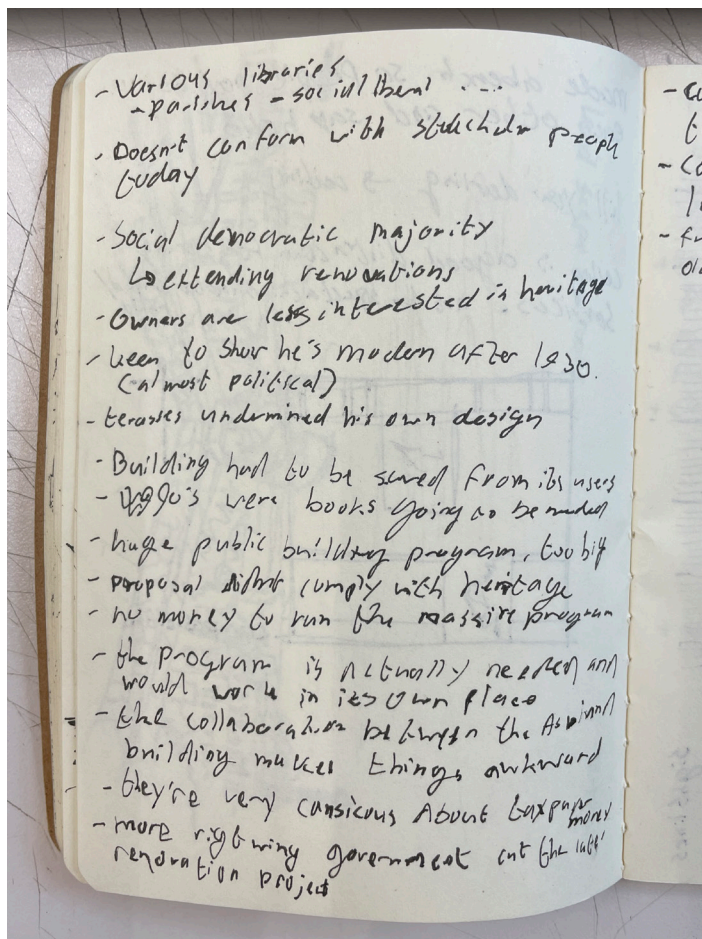 - Various libraries
- parishes - social liberal ....
- Doesn't conform with people
today
- Social democratic majority
↳ extending renovations
- Owners are less interested in heritage
- keen to show he's modern after 1930.
(almost political)
- terasses undermined his own design
- Building had to be saved from its users
- 1990's were books going to be needed
- huge public building program, too big
- proposal didnt comply with heritage
- no money to run the massive program
- the program is actually needed and
would work in its own place
- the collaboration between the
building makes things awkward
- they're very consicous About taxpayer
money
- more rigtwing government cut the
renovation project